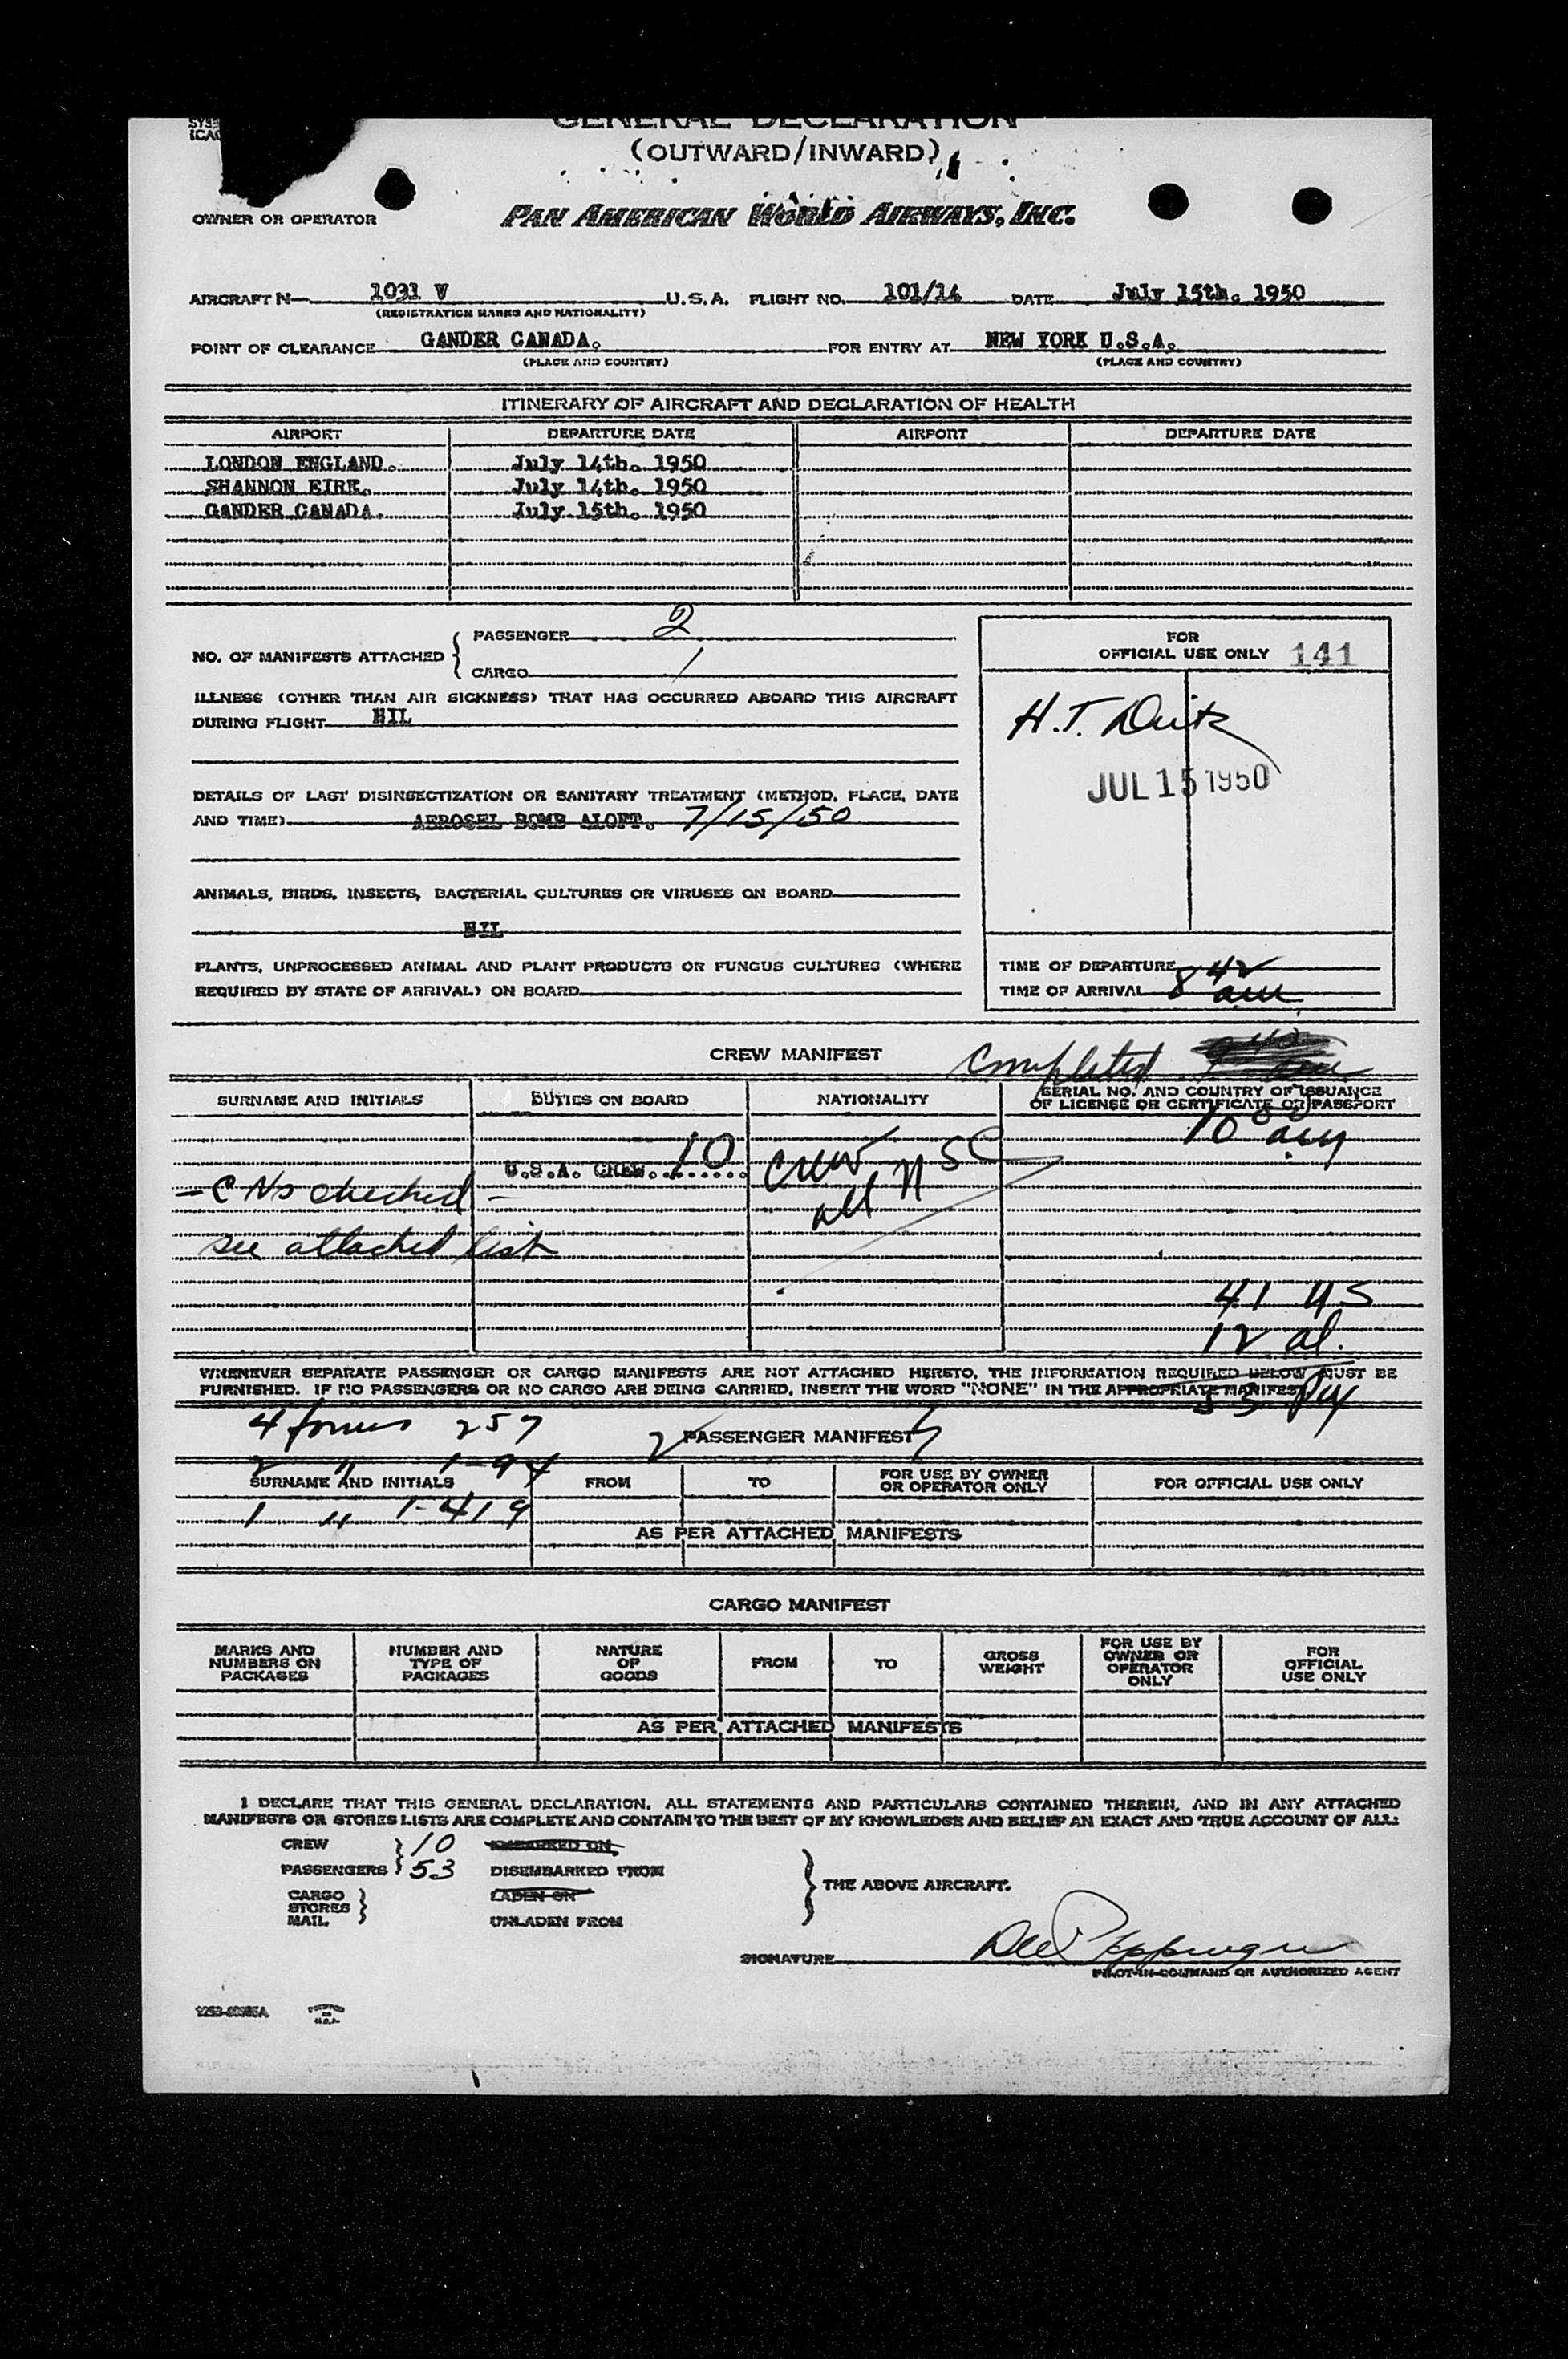 GENERAL DECLARATION
(OUTWARD/INWARD)
OWNER OR OPERATOR PAN AMERICAN WORLD AIRWAYS, INC.
AIRCRAFT N— 1031 V U.S.A. FLIGHT NO. 101/14 DATE July 15th. 1950
(REGISTRATION MARKS AND NATIONALITY)
POINT OF CLEARANCE GANDER CANADA. FOR ENTRY AT NEW YORK U.S.A.
(PLACE AND COUNTRY) (PLACE AND COUNTRY)
ITINERARY OF AIRCRAFT AND DECLARATION OF HEALTH
AIRPORT DEPARTURE DATE AIRPORT DEPARTURE DATE
LONDON ENGLAND. July 14th. 1950
SHANNON EIRE. July 14th. 1950
GANDER CANADA. July 15th. 1950
NO. OF MANIFESTS ATTACHED { PASSENGER 2
CARGO 1
FOR
OFFICIAL USE ONLY 141
ILLNESS (OTHER THAN AIR SICKNESS) THAT HAS OCCURRED ABOARD THIS AIRCRAFT
DURING FLIGHT NIL
H.T.
JUL 15 1950
DETAILS OF LAST DISINSECTIZATION OR SANITARY TREATMENT (METHOD, PLACE, DATE
AND TIME) AEROSEL BOMB ALOFT. 7/15/50
ANIMALS, BIRDS, INSECTS, BACTERIAL CULTURES OR VIRUSES ON BOARD
NIL
PLANTS, UNPROCESSED ANIMAL AND PLANT PRODUCTS OR FUNGUS CULTURES (WHERE
REQUIRED BY STATE OF ARRIVAL) ON BOARD
TIME OF DEPARTURE
TIME OF ARRIVAL 8 42 am
CREW MANIFEST Completed
SURNAME AND INITIALS DUTIES ON BOARD NATIONALITY SERIAL NO. AND COUNTRY OF ISSUANCE
OF LICENSE OR CERTIFICATE OR PASSPORT
10 00 am
U.S.A. CREW 10 Crew
all
– C No checked –
see attached list
41 US
12 al.
53
WHENEVER SEPARATE PASSENGER OR CARGO MANIFESTS ARE NOT ATTACHED HERETO, THE INFORMATION REQUIRED BELOW MUST BE
FURNISHED. IF NO PASSENGERS OR NO CARGO ARE BEING CARRIED, INSERT THE WORD "NONE" IN THE APPROPRIATE MANIFEST.
4 forms 257
PASSENGER MANIFEST
2 " 1-94
SURNAME AND INITIALS FROM TO FOR USE BY OWNER
OR OPERATOR ONLY FOR OFFICIAL USE ONLY
1 " 1-419
AS PER ATTACHED MANIFESTS
CARGO MANIFEST
MARKS AND
NUMBERS ON
PACKAGES
NUMBER AND
TYPE OF
PACKAGES
NATURE
OF
GOODS
FROM
TO
GROSS
WEIGHT
FOR USE BY
OWNER OR
OPERATOR
ONLY
FOR
OFFICIAL
USE ONLY
AS PER ATTACHED MANIFESTS
I DECLARE THAT THIS GENERAL DECLARATION, ALL STATEMENTS AND PARTICULARS CONTAINED THEREIN, AND IN ANY ATTACHED
MANIFESTS OR STORES LISTS ARE COMPLETE AND CONTAIN TO THE BEST OF MY KNOWLEDGE AND BELIEF AN EXACT AND TRUE ACCOUNT OF ALL:
CREW } 10 EMBARKED ON
PASSENGERS } 53 DISEMBARKED FROM
CARGO
STORES }
MAIL
LADEN ON
UNLADEN FROM
} THE ABOVE AIRCRAFT.
SIGNATURE
PILOT-IN-COMMAND OR AUTHORIZED AGENT
PRINTED
IN
U.S.A.